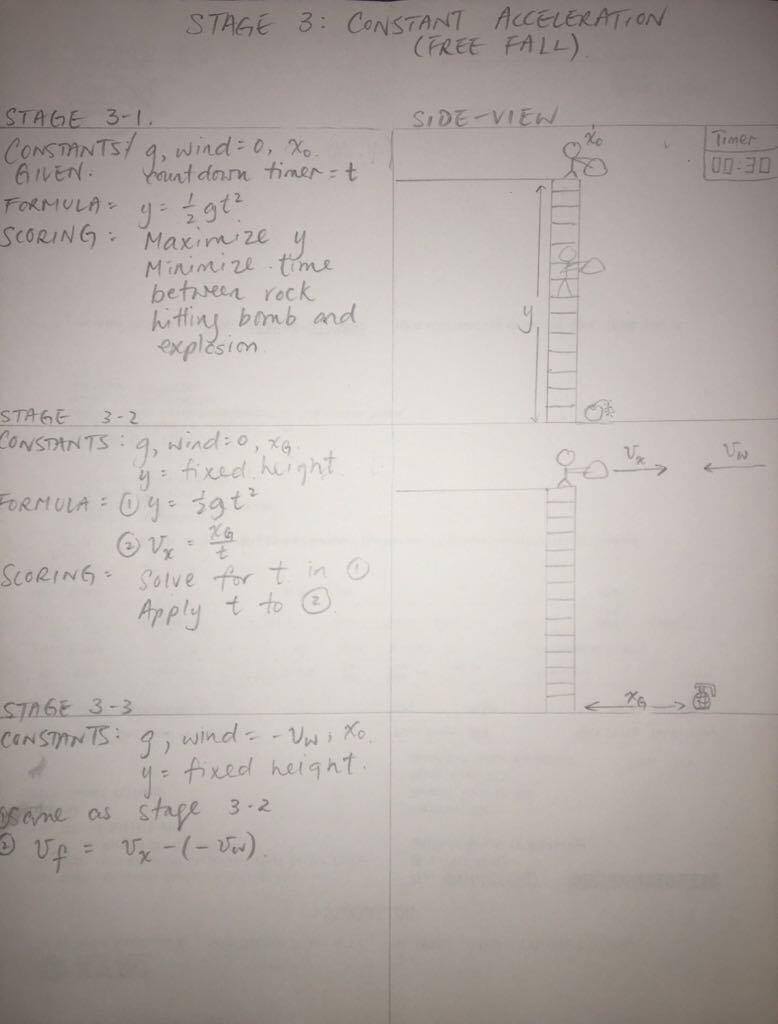 STAGE 3: CONSTANT ACCELERATION
(FREE FALL)
STAGE 3-1.
CONSTANTS/ g, wind=0, x₀.
GIVEN. countdown timer = t
FORMULA= y = ½gt²
SCORING: Maximize y
Minimize time
between rock
hitting bomb and
explosion.
SIDE-VIEW
x₀
Timer
00:30
y
STAGE 3-2
CONSTANTS: g, wind=0, xG.
y = fixed height.
FORMULA = ① y = ½gt²
② Vx = xG/t
SCORING= Solve for t in ①
Apply t to ②.
Vx
Vw
xG
STAGE 3-3
CONSTANTS: g, wind= -Vw, x₀.
y = fixed height.
① Same as stage 3-2
② Vf = Vx-(-Vw).